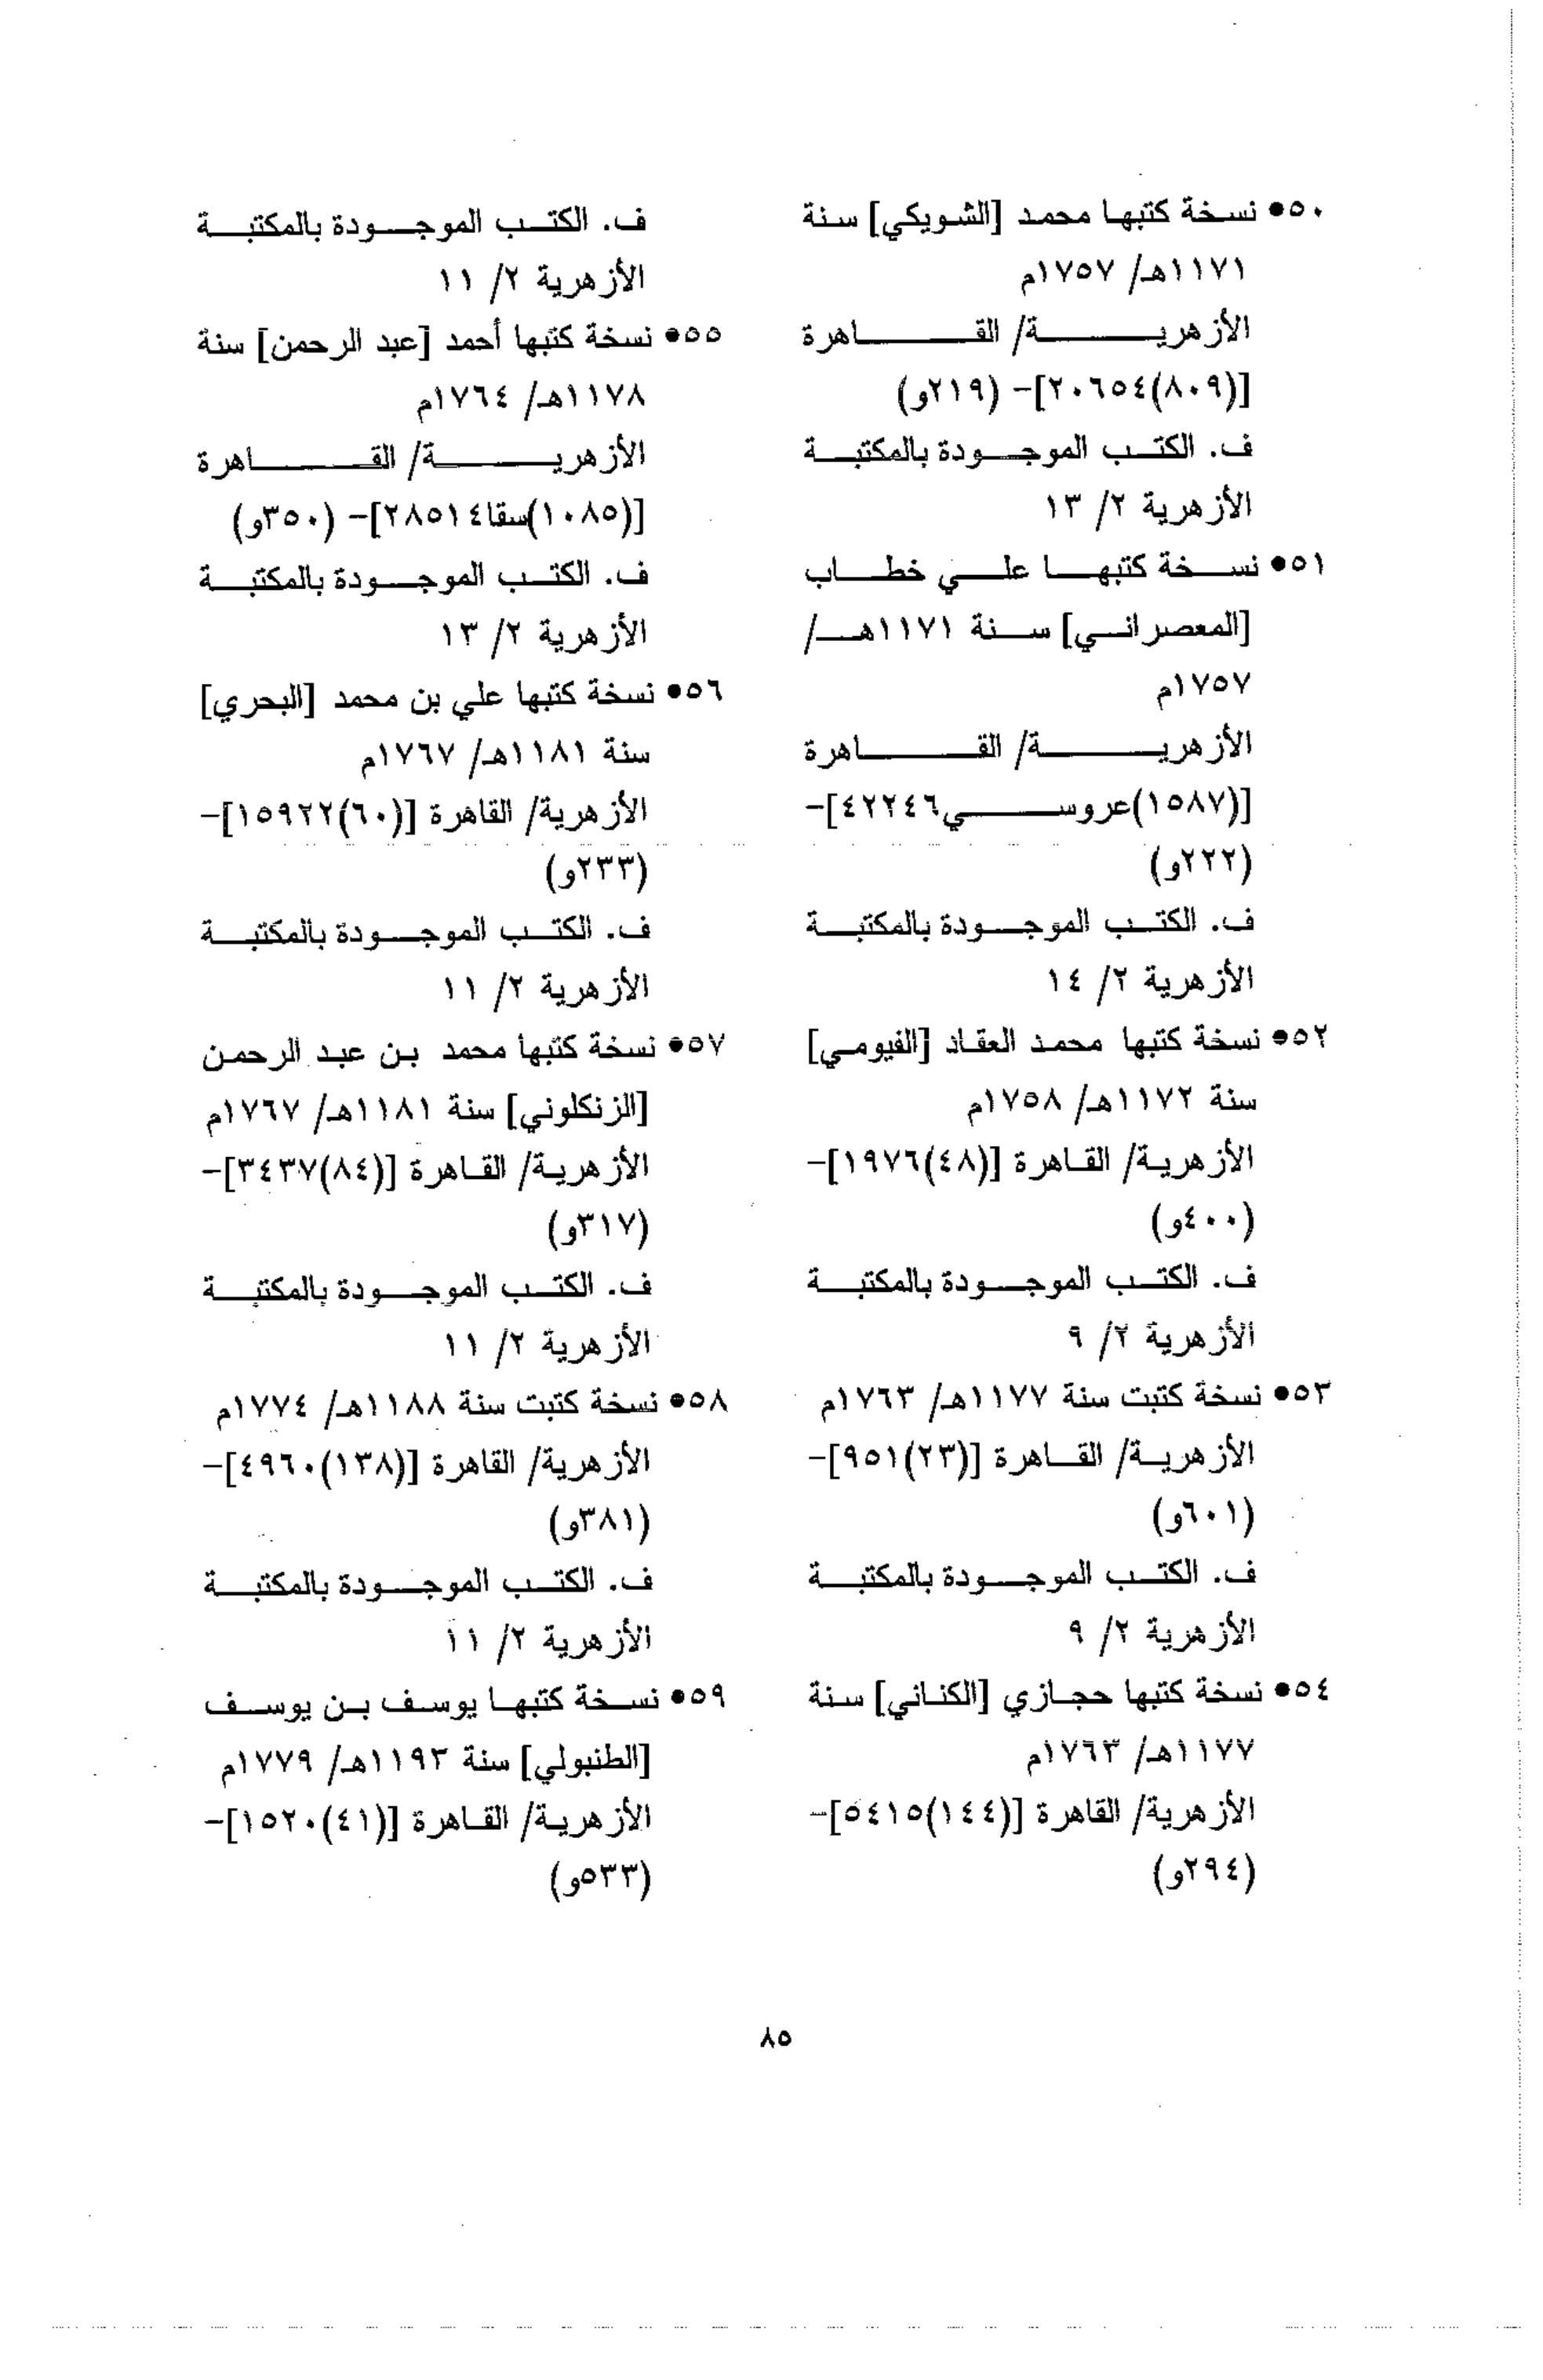 ٥٠● نسخة كتبها محمد [الشويكي] سنة
١١٧١هـ/ ١٧٥٧م
الأزهرية/ القاهرة
[(٨٠٩)٢٠٦٥٤]- (٢١٩و)
ف. الكتب الموجودة بالمكتبة
الأزهرية ٢/ ١٣
٥١● نسخة كتبها علي خطاب
[المعصراني] سنة ١١٧١هـ/
١٧٥٧م
الأزهرية/ القاهرة
[(١٥٨٧)عروسي٤٢٢٤٦]-
(٢٢٢و)
ف. الكتب الموجودة بالمكتبة
الأزهرية ٢/ ١٤
٥٢● نسخة كتبها محمد العقاد [الفيومي]
سنة ١١٧٢هـ/ ١٧٥٨م
الأزهرية/ القاهرة [(٤٨)١٩٧٦]-
(٤٠٠و)
ف. الكتب الموجودة بالمكتبة
الأزهرية ٢/ ٩
٥٣● نسخة كتبت سنة ١١٧٧هـ/ ١٧٦٣م
الأزهرية/ القاهرة [(٢٣)٩٥١]-
(٦٠١و)
ف. الكتب الموجودة بالمكتبة
الأزهرية ٢/ ٩
٥٤● نسخة كتبها حجازي [الكناني] سنة
١١٧٧هـ/ ١٧٦٣م
الأزهرية/ القاهرة [(١٤٤)٥٤١٥]-
(٢٩٤و)
ف. الكتب الموجودة بالمكتبة
الأزهرية ٢/ ١١
٥٥● نسخة كتبها أحمد [عبد الرحمن] سنة
١١٧٨هـ/ ١٧٦٤م
الأزهرية/ القاهرة
[(١٠٨٥)سقا٢٨٥١٤]- (٣٥٠و)
ف. الكتب الموجودة بالمكتبة
الأزهرية ٢/ ١٣
٥٦● نسخة كتبها علي بن محمد [البحري]
سنة ١١٨١هـ/ ١٧٦٧م
الأزهرية/ القاهرة [(٦٠)١٥٩٢٢]-
(٢٣٣و)
ف. الكتب الموجودة بالمكتبة
الأزهرية ٢/ ١١
٥٧● نسخة كتبها محمد بن عبد الرحمن
[الزنكلوني] سنة ١١٨١هـ/ ١٧٦٧م
الأزهرية/ القاهرة [(٨٤)٣٤٣٧]-
(٣١٧و)
ف. الكتب الموجودة بالمكتبة
الأزهرية ٢/ ١١
٥٨● نسخة كتبت سنة ١١٨٨هـ/ ١٧٧٤م
الأزهرية/ القاهرة [(١٣٨)٤٩٦٠]-
(٣٨١و)
ف. الكتب الموجودة بالمكتبة
الأزهرية ٢/ ١١
٥٩● نسخة كتبها يوسف بن يوسف
[الطنبولي] سنة ١١٩٣هـ/ ١٧٧٩م
الأزهرية/ القاهرة [(٤١)١٥٢٠]-
(٥٣٣و)
٨٥